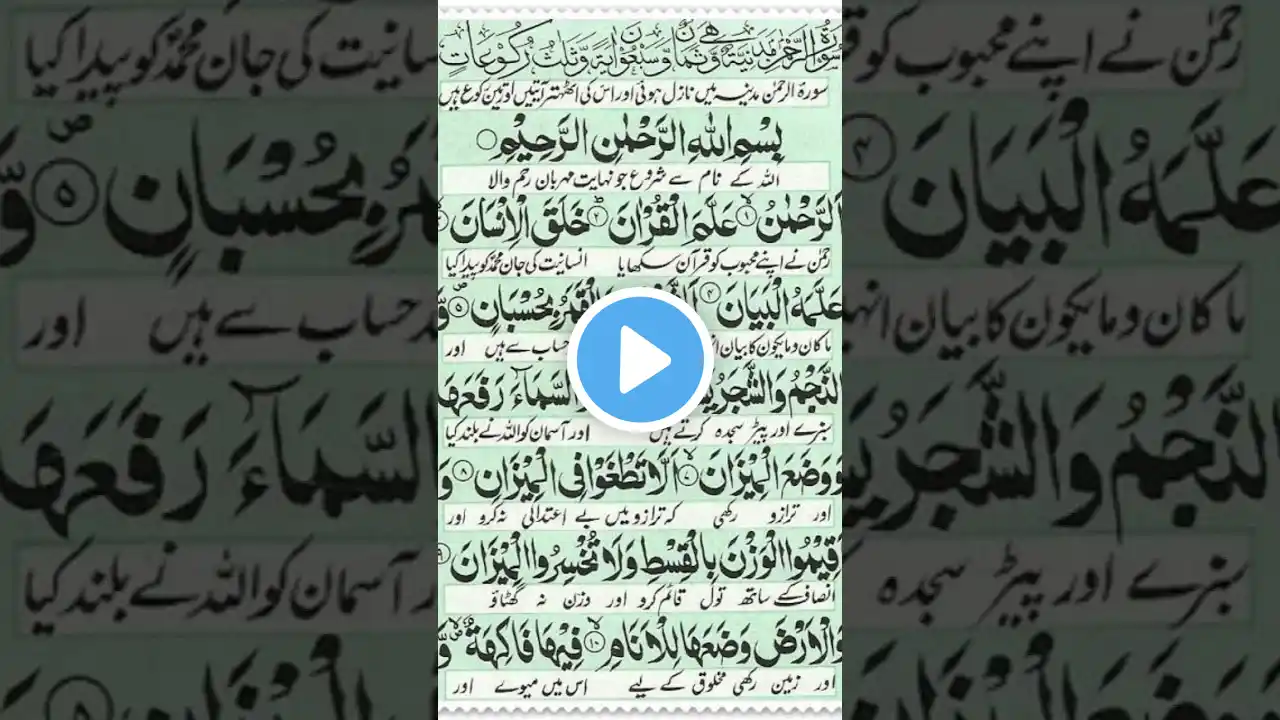 سورۃ الرحمٰن مدنیہ میں نازل ہوئی اور اس کی اٹھتر آیتیں اور تین رکوع ہیں
بِسْمِ اللهِ الرَّحْمٰنِ الرَّحِيْمِ
اللہ کے نام سے شروع جو نہایت مہربان رحم والا
اَلرَّحْمٰنُ ۱ عَلَّمَ الْقُرْاٰنَ ۲ خَلَقَ الْاِنْسَانَ
رحمٰن نے اپنے محبوب کو قرآن سکھایا انسانیت کی جان محمد کو پیدا کیا
عَلَّمَهُ الْبَيَانَ ۴ بِحُسْبَانٍ ۵ وَّ
ما کان وما یکون کا بیان حساب سے ہیں اور
النَّجْمُ وَالشَّجَرُ وَالسَّمَآءَ رَفَعَهَا
سبزے اور پیڑ سجدہ کرتے ہیں اور آسمان کو اللہ نے بلند کیا
وَوَضَعَ الْمِيْزَانَ ۷ اَلَّا تَطْغَوْا فِي الْمِيْزَانِ ۸ وَ
اور ترازو رکھی کہ ترازو میں بے اعتدالی نہ کرو اور
قِيْمُوا الْوَزْنَ بِالْقِسْطِ وَلَا تُخْسِرُوا الْمِيْزَانَ ۹
انصاف کے ساتھ تول قائم کرو اور وزن نہ گھٹاؤ
وَالْاَرْضَ وَضَعَهَا لِلْاَنَامِ ۱۰ فِيْهَا فَاكِهَةٌ وَّ
اور زمین رکھی مخلوق کے لیے اس میں میوے اور